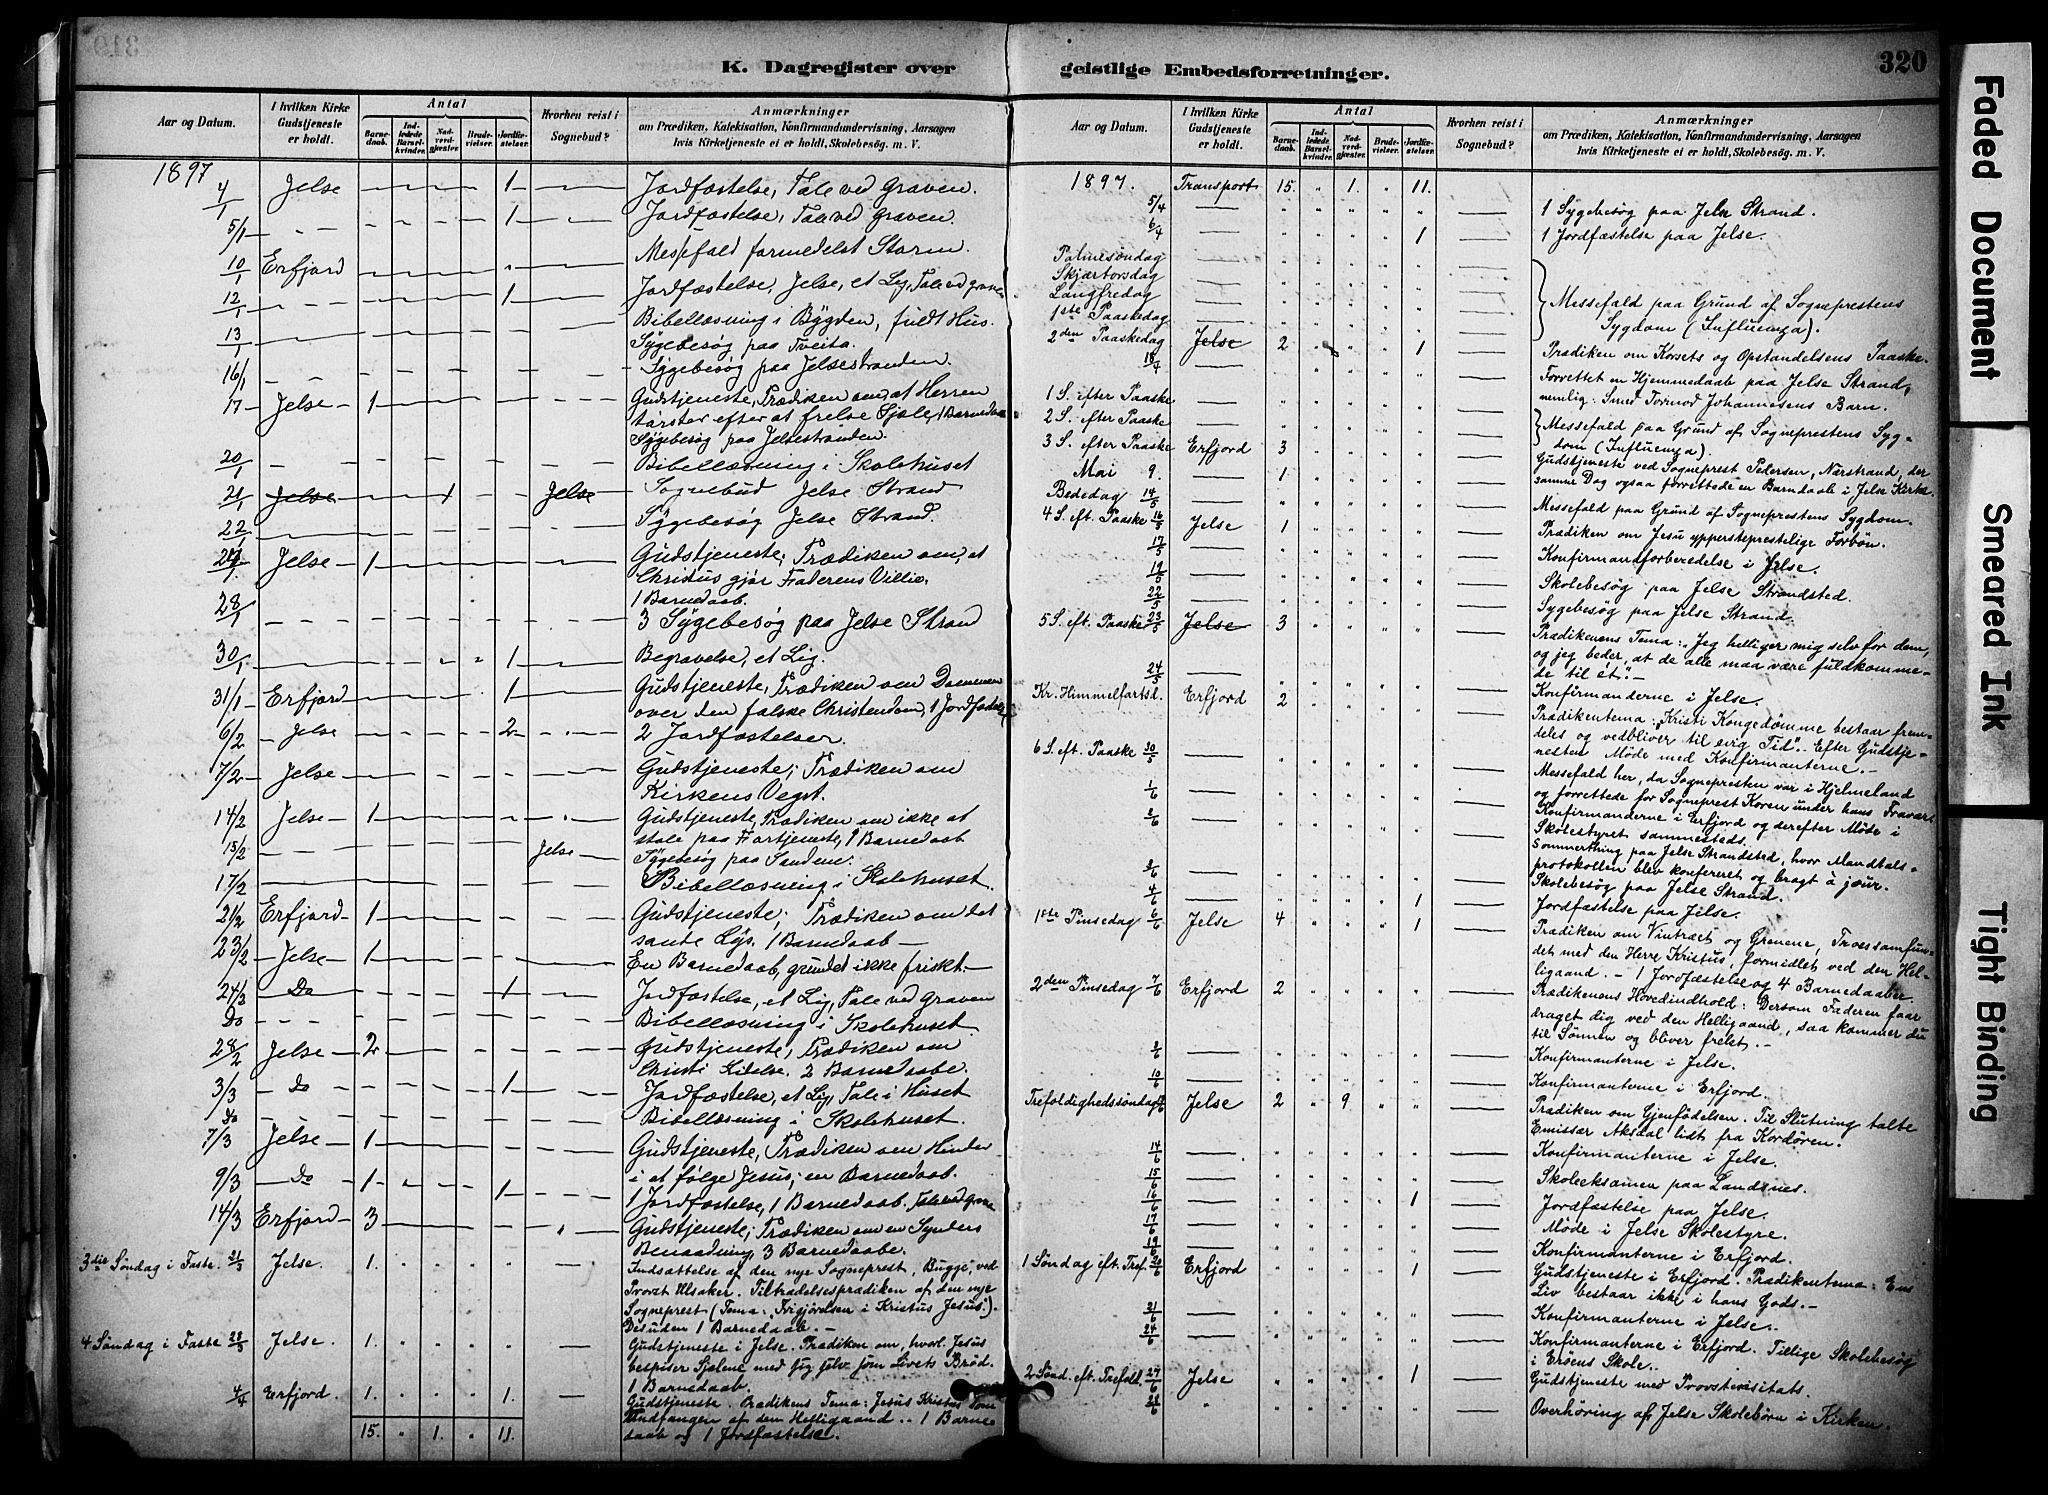 K. Dagregister over geistlige Embedsforretninger.
320
Aar og Datum. I hvilken Kirke Gudstjeneste er holdt. Antal Barnedaab. Indledede Barselkvinder. Nadverdgjester. Brudevielser. Jordfæstelser. Hvorhen reist i Sognebud? Anmærkninger om Prædiken, Katekisation, Konfirmandundervisning, Aarsagen hvis Kirketjeneste ei er holdt, Skolebesøg. m. V.
1897
4/1 Jelse 1 Jordfæstelse, Tale ved Graven.
5/1 1 Jordfæstelse, Tale ved Graven
10/1 Erfjord Messefald formedelst Storm.
12/1 1 Jordfæstelse, Jelse, et Lig, Tale ved grave
13/1 Bibellæsning i Bygden, fuldt Hus.
Sygebesøg paa Tveita.
16/1 Sygebesøg paa Jelsestranden.
17 Jelse 1 Gudstjeneste, Prædiken om, at Herren
tørster efter at frelse Sjæle, 1 Barnedaab
Sygebesøg paa Jelsestranden.
20/1 Bibellæsning i Skolehuset
21/1 Jelse 1 Jelse Sognebud Jelse Strand
22/1 Sygebesøg Jelse Strand.
24/1 Jelse 1 Gudstjeneste, Prædiken om, at
Christus gjør Faderens Villie.
1 Barnedaab.
28/1 3 Sygebesøg paa Jelse Strand
30/1 1 Begravelse, et Lig.
31/1 Erfjord 1 Gudstjeneste, Prædiken om Dommen
over den falske Christendom, 1 Jordfæstelse
6/2 Jelse 2 2 Jordfæstelser.
7/2 Jelse Gudstjeneste; Prædiken om
Kirkens Vegst.
14/2 Jelse 1 Gudstjeneste, Prædiken om ikke at
stole paa Fortjeneste, 1 Barnedaab
15/2 Jelse Sygebesøg paa Sandene.
17/2 Bibellæsning i Skolehuset.
21/2 Erfjord 1 Gudstjeneste; Prædiken om det
sante Lys, 1 Barnedaab
23/2 Jelse 1 En Barnedaab, grundet ikke friskt
24/2 Do 1 Jordfæstelse, et Lig, Tale ved Graven
Do Bibellæsning i Skolehuset.
28/2 Jelse 2 Gudstjeneste, Prædiken om
Christi Lidelse. 2 Barnedaabe.
3/3 Do 1 Jordfæstelse, et Lig, Tale i Huset
Do Bibellæsning i Skolehuset.
7/3 Jelse 1 Gudstjeneste, Prædiken om Hinder
i at følge Jesus; en Barnedaab.
9/3 Do 1 1 1 Jordfæstelse, 1 Barnedaab. Tale ved Grave
14/3 Erfjord 3 Gudstjeneste; Prædiken om en Synders
Benaadning, 3 Barnedaabe.
3die Søndag i Faste. 21/3 Jelse. 1. Indsættelse af den nye Sogneprest, Bugge, ved
Provst Ulsaker. Tiltrædelsesprædiken af den nye
Sogneprest (Tema: Frigjørelsen i Kristus Jesus.).
Desuden 1 Barnedaab.
4 Søndag i Faste 28/3 Jelse. 1. Gudstjeneste i Jelse. Prædiken om, hvorl. Jesus
bespiser Sjælene med sig selv som Livets Brød.
1 Barnedaab.
4/4 Erfjord. 1. 1. Gudstjeneste. Prædikens Tema: Jesus Kristus som
Undfangen af den Helligaand. 1 Barne-
daab og 1 Jordfæstelse.
15. " 1. " 11.
Aar og Datum. I hvilken Kirke Gudstjeneste er holdt. Antal Barnedaab. Indledede Barselkvinder. Nadverdgjester. Brudevielser. Jordfæstelser. Hvorhen reist i Sognebud? Anmærkninger om Prædiken, Katekisation, Konfirmandundervisning, Aarsagen hvis Kirketjeneste ei er holdt, Skolebesøg. m. V.
1897. Transport 15. " 1. " 11.
5/4 1 Sygebesøg paa Jelse Strand.
6/4 1 1 Jordfæstelse paa Jelse.
Palmesøndag
Skjærtorsdag
Langfredag Messefald paa Grund af Sogneprestens
1ste Paaskedag Sygdom (Influenza).
2den Paaskedag Jelse 2 1 Prædiken om Korsets og Opstandelsens Paaske.
18/4 Forrettet en Hjemmedaab paa Jelse Strand,
nemlig: Smed Tormod Johannesens Barn.
1 S. efter Paaske
2 S. efter Paaske Messefald paa Grund af Sogneprestens Syg-
dom (Influenza).
3 S. efter Paaske Erfjord 3 Gudstjeneste ved Sogneprest Pedersen, Nærstrand, der
Mai 9. 1 samme Dag ogsaa forrettede en Barnedaab i Jelse Kirke.
Bededag 14/5 Messefald paa Grund af Sogneprestens Sygdom.
4 S. eft. Paaske 16/5 Jelse 1 Prædiken om Jesu ypperstepresteIige Forbøn.
17/5 Konfirmandforberedelse i Jelse.
19/5 Skolebesøg paa Jelse Strandsted.
22/5 Sygebesøg paa Jelse Strand.
5 S. eft. Paaske 23/5 Jelse 3 Prædikenens Tema: Jeg helliger mig selv for dem,
og jeg beder, at de alle maa være fuldkomme-
de til ét."
24/5 Konfirmanderne i Jelse.
Kr. Himmelfartsd. Erfjord 2 Prædikentema: "Kristi Kongedømme bestaar frem-
deles og vedbliver til evig Tid". Efter Gudstje-
nesten Møde med Konfirmanterne.
6 S. eft. Paaske 30/5 Messefald her, da Sognepresten var i Hjelmeland
og forrettede for Sogneprest Koren under hans Fravær.
1/6 Konfirmanderne i Erfjord og derefter Møde i
Skolestyret sammesteds.
2/6 Sommerthing paa Jelse Strandsted, hvor Mandtals-
protokollen blev konfereret og bragt à jour.
3/6 Skolebesøg paa Jelse Strand.
4/6 1 Jordfæstelse paa Jelse.
1ste Pinsedag 6/6 Jelse 4 1 Prædiken om Vintræet og Grenene, Troessamfun-
det med den Herre Kristus, formidlet ved den Hel-
ligaand. - 1 Jordfæstelse og 4 Barnedaaber.
2den Pinsedag 7/6 Erfjord 2 Prædikenens Hovedindhold: Dersom Faderen faar
draget dig ved den Helligaand, saa kommer du
til Sønnen og bliver frelst.
8/6 Konfirmanterne i Jelse.
10/6 Konfirmanterne i Erfjord.
Trefoldighedssøndag Jelse 2 9 Prædiken om Gjenfødelsen. Til Slutning talte
Emissær Aksdal lidt fra Kordøren.
14/6 Konfirmanterne i Jelse.
15/6 Skoleeksamen paa Landsnes.
16/6 1 Jordfæstelse paa Jelse.
17/6 Møde i Jelse Skolestyre.
19/6 Konfirmanterne i Erfjord.
1 Søndag eft. Tref. 20/6 Erfjord 1 Gudstjeneste i Erfjord. Prædikentema: Ens
Liv bestaar ikke i hans Gods.
21/6 Konfirmanterne i Jelse.
24/6 Konfirmanterne i Erfjord. Tillige Skolebesøg
i Erøens Skole.
2 Sønd. eft. Trefold. 27/6 Jelse 1 Gudstjeneste med Provstevisitats.
28/6 " Overhøring af Jelse Skolebørn i Kirken.
Faded Document
Smeared Ink
Tight Binding